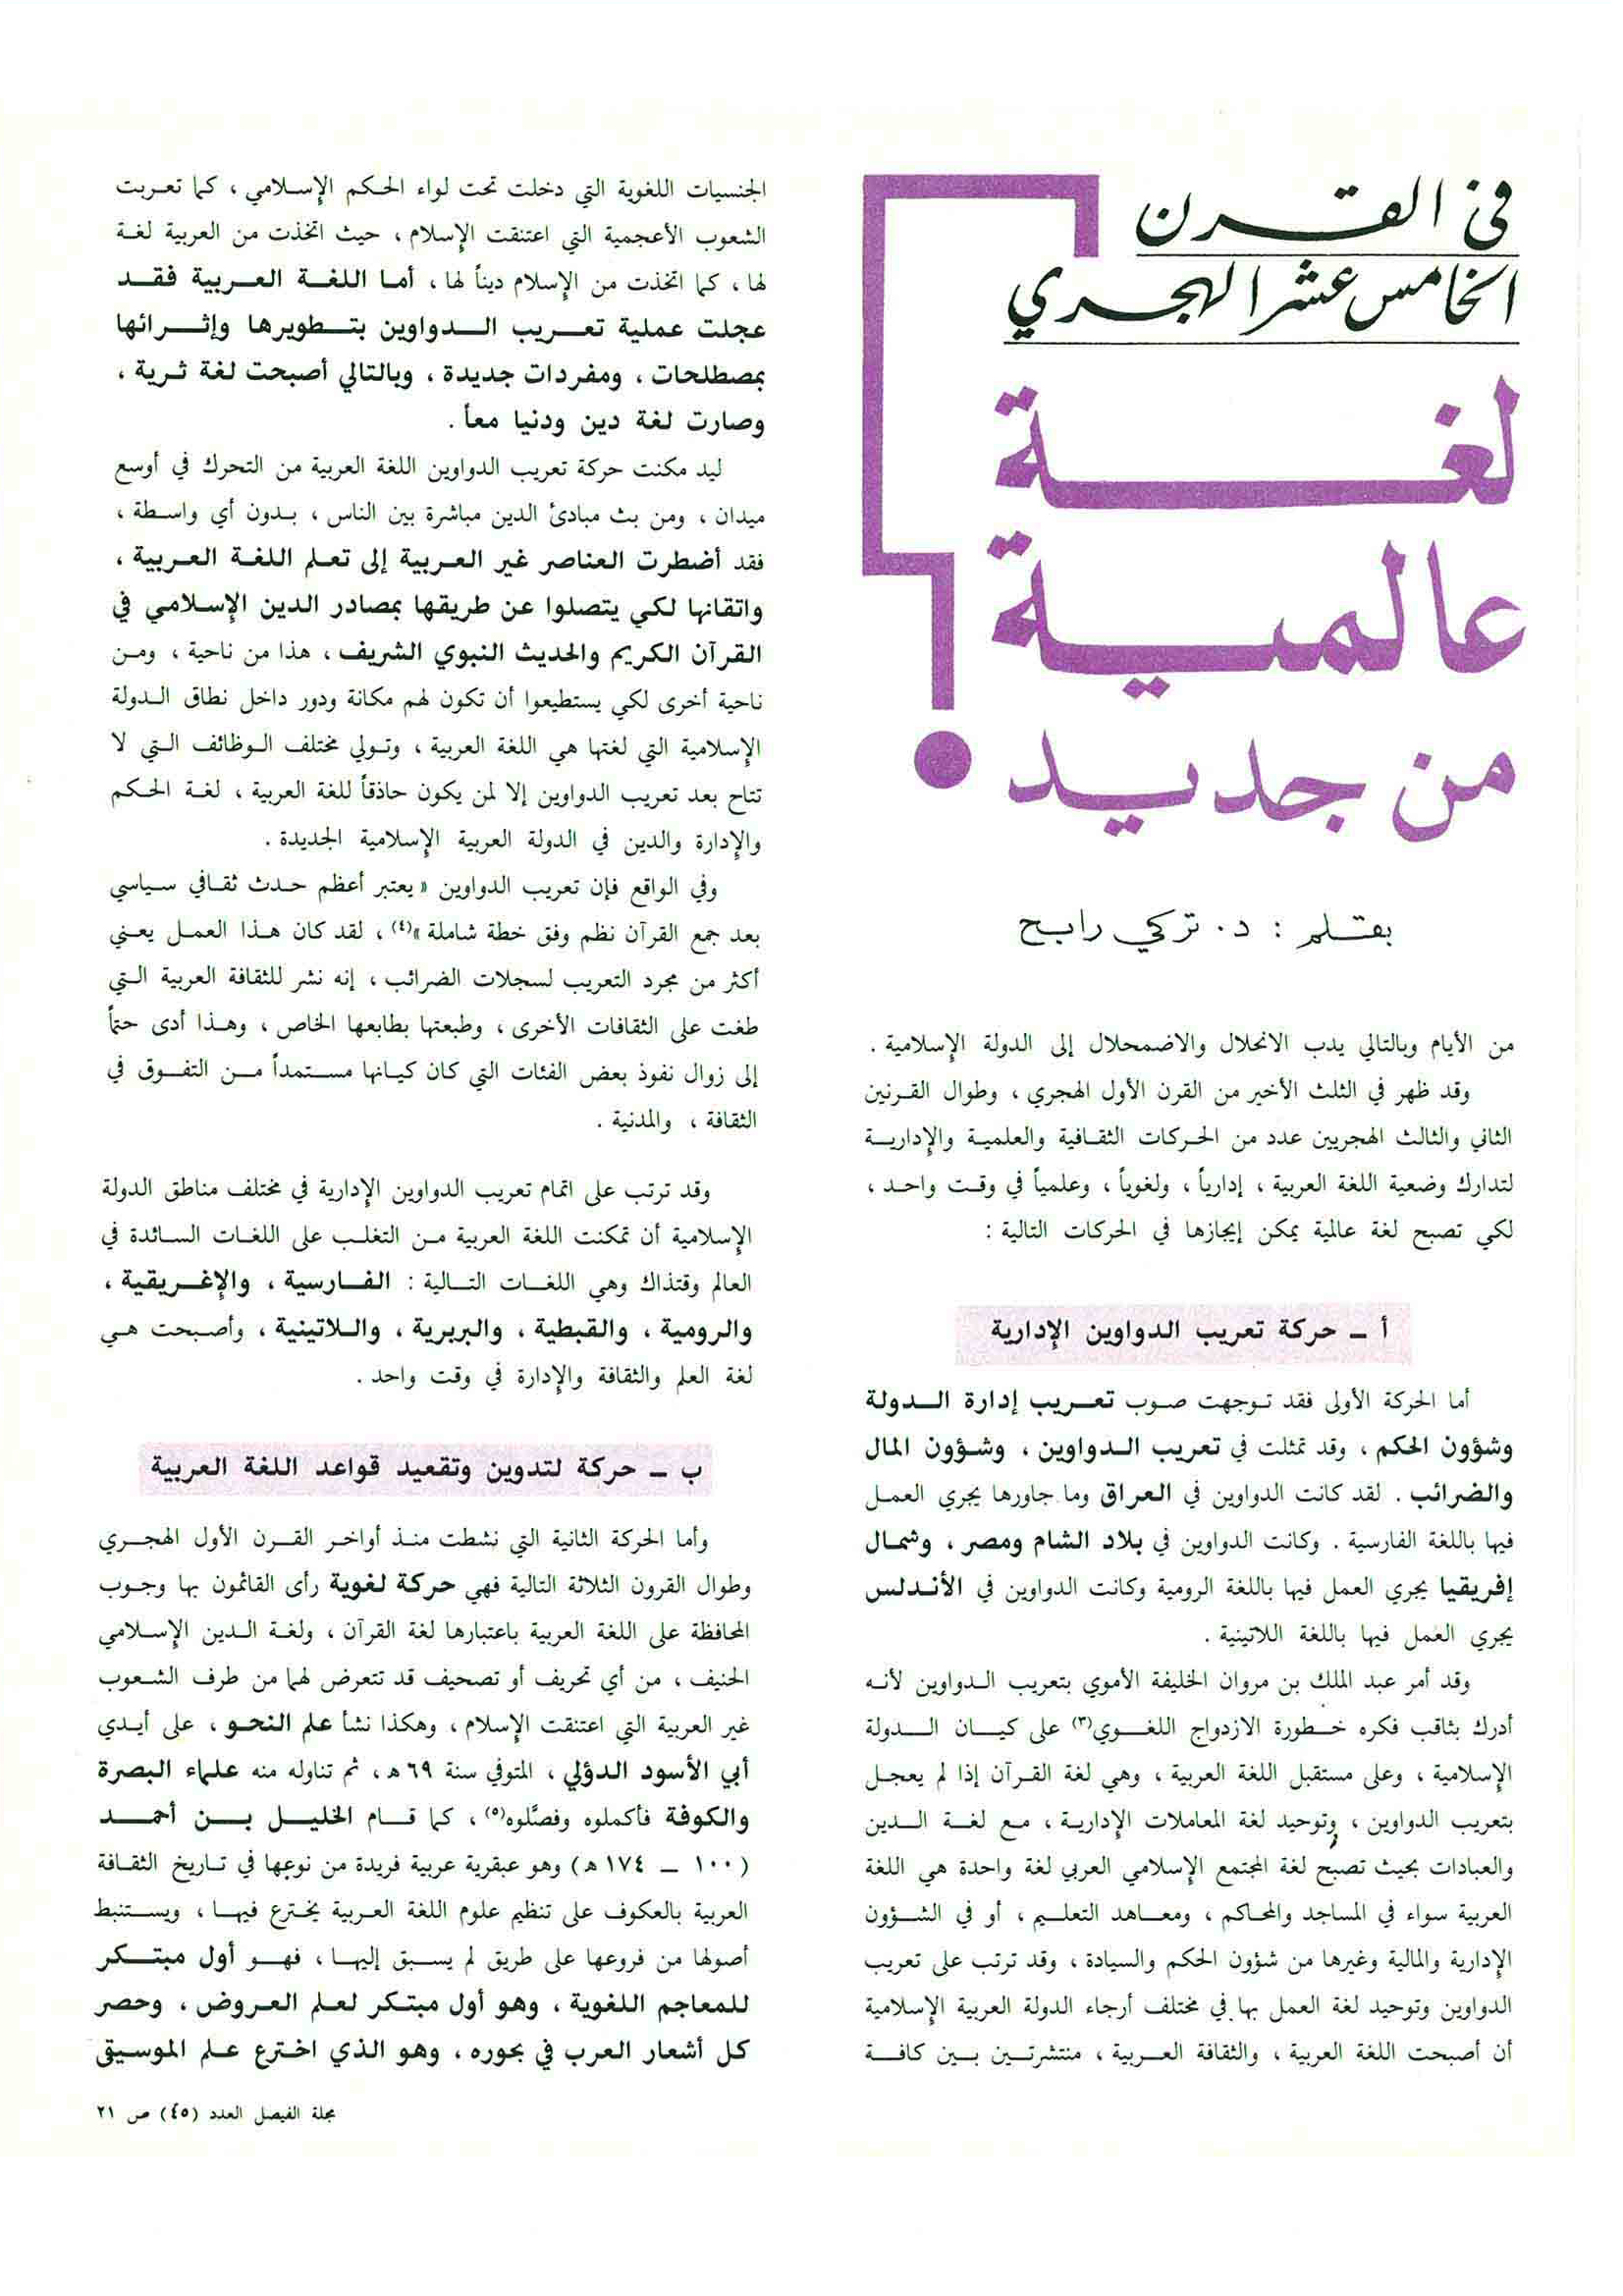 في القرن
الخامس عشر الهجري
لغة
عالمية
من جديد
بقلم : د. تركي رابح
من الأيام وبالتالي يدب الانحلال والاضمحلال إلى الدولة الإسلامية .
وقد ظهر في الثلث الأخير من القرن الأول الهجري ، وطوال القرنين
الثاني والثالث الهجريين عدد من الحركات الثقافية والعلمية والإدارية
لتدارك وضعية اللغة العربية ، إدارياً ، ولغوياً ، وعلمياً في وقت واحد ،
لكي تصبح لغة عالمية يمكن إيجازها في الحركات التالية :
أ ــ حركة تعريب الدواوين الإدارية
أما الحركة الأولى فقد توجهت صوب تعريب إدارة الدولة
وشؤون الحكم ، وقد تمثلت في تعريب الدواوين ، وشؤون المال
والضرائب . لقد كانت الدواوين في العراق وما جاورها يجري العمل
فيها باللغة الفارسية . وكانت الدواوين في بلاد الشام ومصر ، وشمال
إفريقيا يجري العمل فيها باللغة الرومية وكانت الدواوين في الأندلس
يجري العمل فيها باللغة اللاتينية .
وقد أمر عبد الملك بن مروان الخليفة الأموي بتعريب الدواوين لأنه
أدرك بثاقب فكره خطورة الازدواج اللغوي(٣) على كيان الدولة
الإسلامية ، وعلى مستقبل اللغة العربية ، وهي لغة القرآن إذا لم يعجل
بتعريب الدواوين ، وتوحيد لغة المعاملات الإدارية ، مع لغة الدين
والعبادات بحيث تصبح لغة المجتمع الإسلامي العربي لغة واحدة هي اللغة
العربية سواء في المساجد والمحاكم ، ومعاهد التعليم ، أو في الشؤون
الإدارية والمالية وغيرها من شؤون الحكم والسيادة ، وقد ترتب على تعريب
الدواوين وتوحيد لغة العمل بها في مختلف أرجاء الدولة العربية الإسلامية
أن أصبحت اللغة العربية ، والثقافة العربية ، منتشرتين بين كافة
الجنسيات اللغوية التي دخلت تحت لواء الحكم الإسلامي ، كما تعربت
الشعوب الأعجمية التي اعتنقت الإسلام ، حيث اتخذت من العربية لغة
لها ، كما اتخذت من الإسلام ديناً لها ، أما اللغة العربية فقد
عجلت عملية تعريب الدواوين بتطويرها وإثرائها
بمصطلحات ، ومفردات جديدة ، وبالتالي أصبحت لغة ثرية ،
وصارت لغة دين ودنيا معاً .
ليد مكنت حركة تعريب الدواوين اللغة العربية من التحرك في أوسع
ميدان ، ومن بث مبادئ الدين مباشرة بين الناس ، بدون أي واسطة ،
فقد أضطرت العناصر غير العربية إلى تعلم اللغة العربية ،
واتقانها لكي يتصلوا عن طريقها بمصادر الدين الإسلامي في
القرآن الكريم والحديث النبوي الشريف ، هذا من ناحية ، ومن
ناحية أخرى لكي يستطيعوا أن تكون لهم مكانة ودور داخل نطاق الدولة
الإسلامية التي لغتها هي اللغة العربية ، وتولي مختلف الوظائف التي لا
تتاح بعد تعريب الدواوين إلا لمن يكون حاذقاً للغة العربية ، لغة الحكم
والإدارة والدين في الدولة العربية الإسلامية الجديدة .
وفي الواقع فإن تعريب الدواوين « يعتبر أعظم حدث ثقافي سياسي
بعد جمع القرآن نظم وفق خطة شاملة »(٤) ، لقد كان هذا العمل يعني
أكثر من مجرد التعريب لسجلات الضرائب ، إنه نشر للثقافة العربية التي
طغت على الثقافات الأخرى ، وطبعتها بطابعها الخاص ، وهذا أدى حتماً
إلى زوال نفوذ بعض الفئات التي كان كيانها مستمداً من التفوق في
الثقافة ، والمدنية .
وقد ترتب على اتمام تعريب الدواوين الإدارية في مختلف مناطق الدولة
الإسلامية أن تمكنت اللغة العربية من التغلب على اللغات السائدة في
العالم وقتذاك وهي اللغات التالية : الفارسية ، والإغريقية ،
والرومية ، والقبطية ، والبربرية ، واللاتينية ، وأصبحت هي
لغة العلم والثقافة والإدارة في وقت واحد .
ب ــ حركة لتدوين وتقعيد قواعد اللغة العربية
وأما الحركة الثانية التي نشطت منذ أواخر القرن الأول الهجري
وطوال القرون الثلاثة التالية فهي حركة لغوية رأى القائمون بها وجوب
المحافظة على اللغة العربية باعتبارها لغة القرآن ، ولغة الدين الإسلامي
الحنيف ، من أي تحريف أو تصحيف قد تتعرض لهما من طرف الشعوب
غير العربية التي اعتنقت الإسلام ، وهكذا نشأ علم النحو ، على أيدي
أبي الأسود الدؤلي ، المتوفي سنة ٦٩ هـ ، ثم تناوله منه علماء البصرة
والكوفة فأكملوه وفصَّلوه(٥) ، كما قام الخليل بن أحمد
(١٠٠ ــ ١٧٤ هـ) وهو عبقرية عربية فريدة من نوعها في تاريخ الثقافة
العربية بالعكوف على تنظيم علوم اللغة العربية يخترع فيها ، ويستنبط
أصولها من فروعها على طريق لم يسبق إليها ، فهو أول مبتكر
للمعاجم اللغوية ، وهو أول مبتكر لعلم العروض ، وحصر
كل أشعار العرب في بحوره ، وهو الذي اخترع علم الموسيقى
مجلة الفيصل العدد (٤٥) ص ٢١